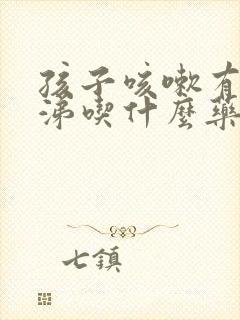 孩子咳嗽有
涕喫什麼藥
七鎮